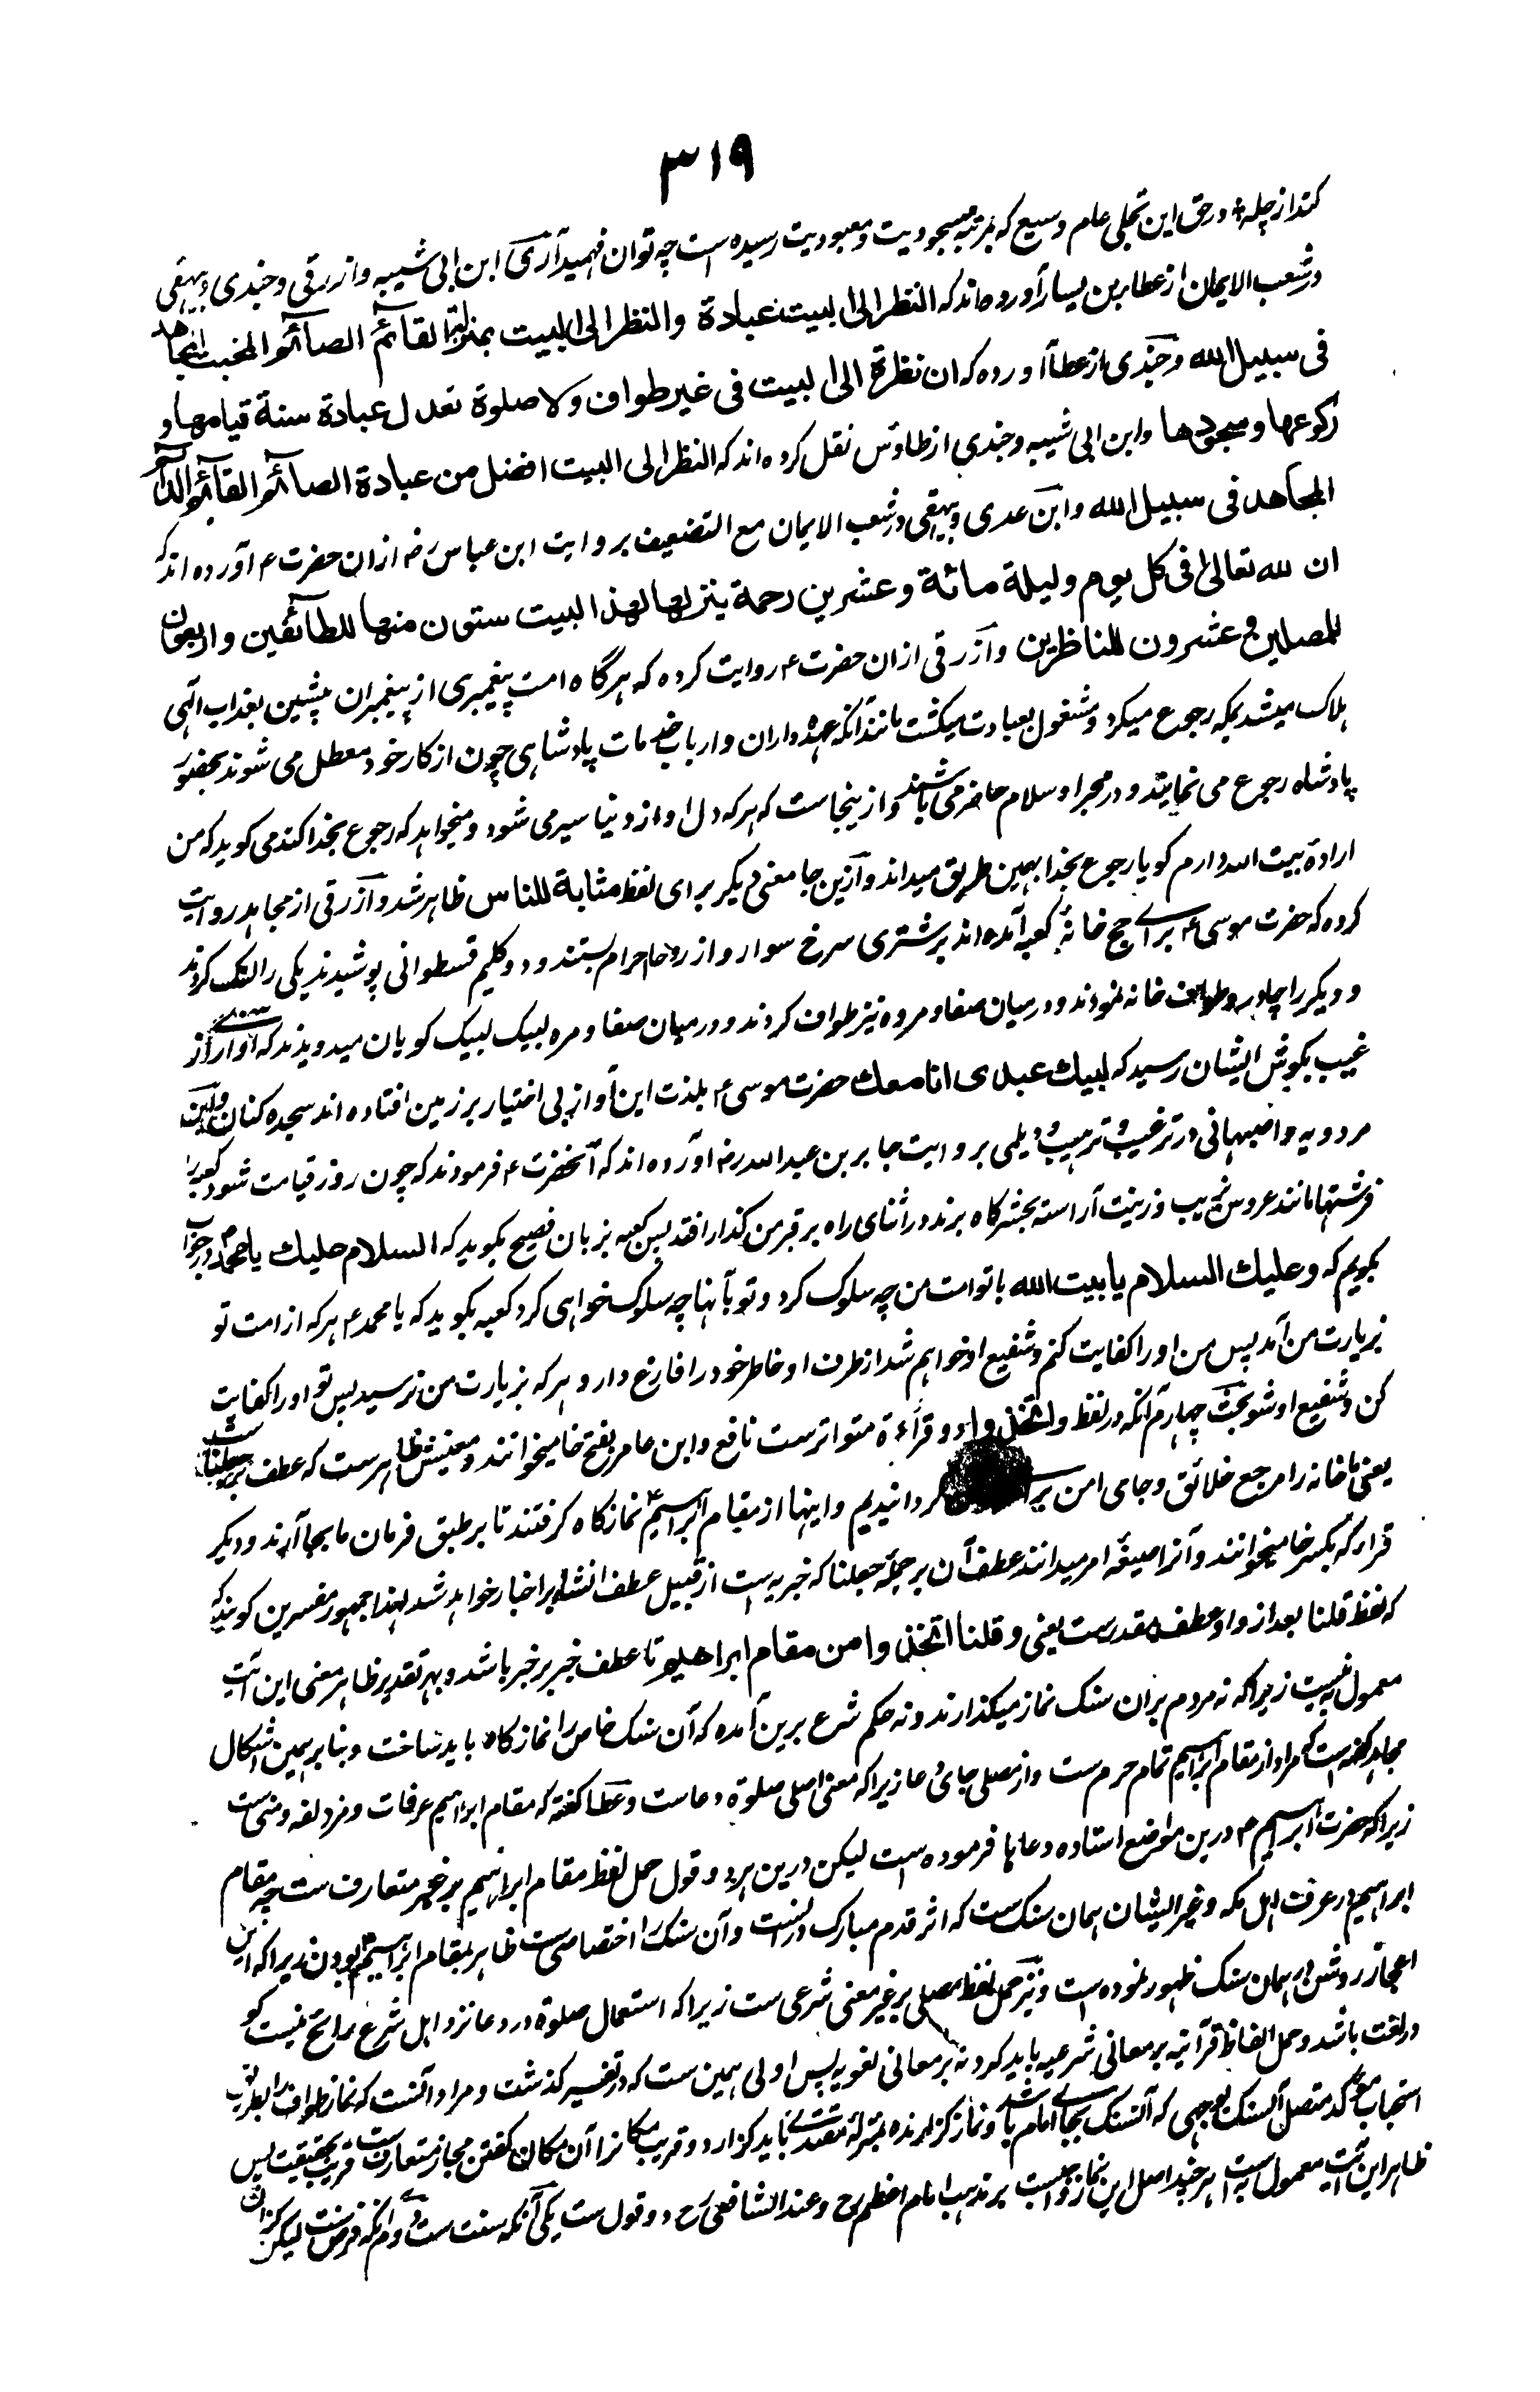 ٣١٩
کند از چله در حق این تجلی عام وسیع که بمرتبه مسجودیت و معبودیت رسیده است چه توان فهمید آری ابن ابی شیبه و ازرقی و جندی و بیهقی
در شعب الایمان از عطا بن یسار آورده اند که النظر الی البیت عبادة والنظر الی البیت بمنزلة القائم الصائم المخبت المجاهد
فی سبیل الله و جندی از عطا آورده که ان نظرة الی البیت فی غیر طواف ولا صلوة تعدل عبادة سنة قیامها و
رکوعها وسجودها و ابن ابی شیبه و جندی از طاوس نقل کرده اند که النظر الی البیت افضل من عبادة الصائم القائم الدائم
المجاهد فی سبیل الله و ابن عدی و بیهقی در شعب الایمان مع التضعیف بروایت ابن عباس رض از ان حضرت ع آورده اند که
ان لله تعالی فی کل یوم ولیلة مائة وعشرین رحمة ینزلها لهذا البیت ستون منها للطائفین واربعون
للمصلین وعشرون للناظرین و ازرقی از ان حضرت ع روایت کرده که هرگاه امت پیغمبری از پیغمبران پیشین بعذاب الهی
هلاک میشد بمکه رجوع میکرد و مشغول بعبادت میگشت مانند آنکه عهده داران و ارباب خدمات پادشاهی چون از کار خود معطل می شوند بحضور
پادشاه رجوع می نمایند و در مجرا و سلام حاضر می باشند و ازینجاست که هرکه دل او از دنیا سیر می شود و میخواهد که رجوع بخدا کند می گوید که من
اراده بیت الله دارم گویا رجوع بخدا بهمین طریق میداند و ازین جا معنی دیگر برای لفظ مثابة للناس ظاهر شد و ازرقی از مجاهد روایت
کرده که حضرت موسی ع برای حج خانه کعبه آمده اند بر شتری سرخ سوار و از روحا احرام بستند و دو گلیم قسطوانی پوشیدند یکی را لنگ کردند
و دیگر را چادر و طواف خانه نمودند و در میان صفا و مروه نیز طواف کردند و در میان صفا و مره لبیک لبیک گویان میدویدند که آواز از
غیب بگوش ایشان رسید که لبیک عبدی انا معک حضرت موسی ع بلذت این آواز بی اختیار بر زمین افتاده اند سجده کنان و ابن
مردویه و اصبهانی در ترغیب و ترهیب و دیلمی بروایت جابر بن عبد الله رض آورده اند که آنحضرت ع فرمودند که چون روز قیامت شود کعبه را
فرشتها مانند عروس بزیب و زینت آراسته بحشرگاه برند در اثنای راه بر قبر من گذار افتد پس کعبه بزبان فصیح بگوید که السلام علیک یا محمد در جواب
بگویم که وعلیک السلام یا بیت الله با تو امت من چه سلوک کرد و تو بآنها چه سلوک خواهی کرد کعبه بگوید که یا محمد ع هر که از امت تو
بزیارت من آمد پس من او را کفایت کنم و شفیع او خواهم شد از طرف او خاطر خود را فارغ دار و هر که بزیارت من نرسید پس تو او را کفایت
کن و شفیع او شو بحث چهارم آنکه در لفظ واتخذوا دو قراءة متواتر ست نافع و ابن عامر بفتح خا میخوانند و معنیش ظاهر ست که عطف بر جعلنا ست
یعنی ما خانه را مرجع خلائق و جای امن گردانیدیم و اینها از مقام ابراهیم ع نمازگاه گرفتند تا بر طبق فرمان ما بجا آرند و دیگر
قراء که بکسر خا میخوانند و آنرا صیغه امر میدانند عطف آن بر جمله جعلنا که خبریه است از قبیل عطف انشا بر اخبار خواهد شد لهذا جمهور مفسرین گویند که
که لفظ قلنا بعد از واو عطف مقدرست یعنی وقلنا اتخذوا من مقام ابراهیم تا عطف خبر بر خبر باشد و بهر تقدیر ظاهر معنی این آیت
معمول به نیست زیرا که نه مردم بران سنگ نماز میگذارند و نه حکم شرع برین آمده که آن سنگ خاص را نمازگاه باید ساخت و بنا بر همین اشکال
مجاهد گفته است که مراد از مقام ابراهیم تمام حرم ست و از مصلی جای دعا زیرا که معنی اصلی صلوة دعاست و عطا گفته که مقام ابراهیم عرفات و مزدلفه و منی ست
زیرا که حضرت ابراهیم ع درین مواضع استاده دعاها فرموده است لیکن درین هر دو قول حمل لفظ مقام ابراهیم بر غیر متعارف ست چه مقام
ابراهیم در عرف اهل مکه و غیر ایشان همان سنگ ست که اثر قدم مبارک در نست و آن سنگ را اختصاصی ست ظاهر بمقام ابراهیم بودن زیرا که این
اعجاز روشن در همان سنگ ظهور نموده است و نیز حمل لفظ مصلی بر غیر معنی شرعی ست زیرا که استعمال صلوة در دعا نزد اهل شرع رائج نیست گو
در لغت باشد و حمل الفاظ قرآنیه بر معانی شرعیه باید کرد نه بر معانی لغویه پس اولی همین ست که در تفسیر گذشت و مراد آنست که نماز طواف را بطریق
استحباب متصل آن سنگ بوجهی که آن سنگ بجای امام باشد و نماز گزارنده بمنزله مقتدی باید گزارد و قریب مکان را آن مکان گفتن مجاز متعارف ست قریب بحقیقت پس
ظاهر این آیت معمول به است هر چند اصل این نماز واجبست بر مذهب امام اعظم رح و عند الشافعی رح دو قول ست یکی آنکه سنت ست دوم آنکه فرض ست لیکن